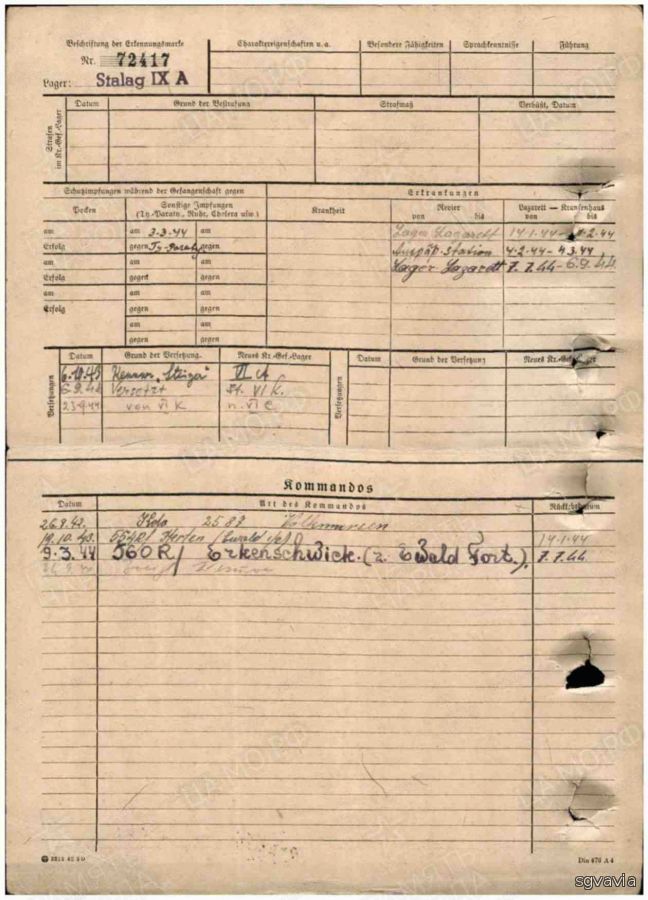 Beschriftung der Erkennungsmarke
Nr. 72417
Lager: Stalag IX A
Charaktereigenschaften u. a. Besondere Fähigkeiten Sprachkenntnisse Führung
Strafen im Kr.-Gef.-Lager
Datum Grund der Bestrafung Strafmaß Verbüßt, Datum
Schutzimpfungen während der Gefangenschaft gegen
Erkrankungen
Pocken Sonstige Impfungen (Ty.-Paraty., Ruhr, Cholera usw.) Krankheit Revier von bis Lazarett — Krankenhaus von bis
am am 3.3.44 Lager Lazarett 14.1.44 - 4.2.44
Erfolg gegen Ty-Paraty gegen station 4.2.44 - 4.3.44
am am am Lager Lazarett 7.7.44 - 6.9.44
Erfolg gegen gegen
am am am
Erfolg gegen gegen
am am
gegen gegen
Versetzungen
Datum Grund der Versetzung Neues Kr.-Gef.-Lager
Versetzungen
Datum Grund der Versetzung Neues Kr.-Gef.-Lager
6.10.43 "Steiger" VI A
6.9.44 Versetzt St. VI K.
von VI K n. VI C
Kommandos
Datum Art des Kommandos Rückf.-Datum
26.9.42. Kdo 2587
19.10.43. Herten / 14.1.44
9.3.44 560 R/ Erkenschwick. (z. Ewald Fort.). 7.7.44
Din 476 A 4
ЦАМО.РФ
sgvavia